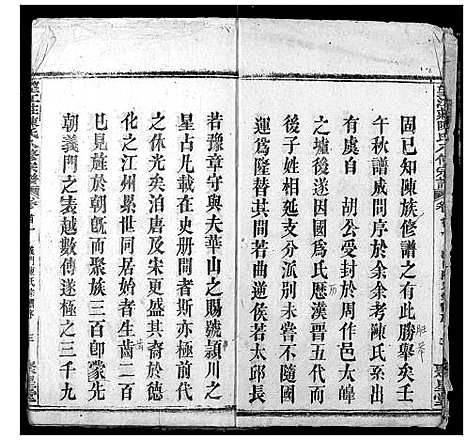 固已知陳族修譜之有此勝舉矣壬
午秋譜局於余余考陳氏系出
有虞自 胡公受封於周作邑太皡
之墟後因國爲氏歷漢晋五代而
後子姓奕奕支分派别未嘗不隨國
運爲隆替若曲逆侯若太邱長
若豫章守與夫華山之賜號潁川之
星占凡載在史册者斯亦極前代
之休光矣洎唐及宋更盛其裔於德
化之江州纍世同居始者生齒二百
已見旌於朝旣而聚族三百卽蒙先
朝義門之表越數傳遂極之三千九